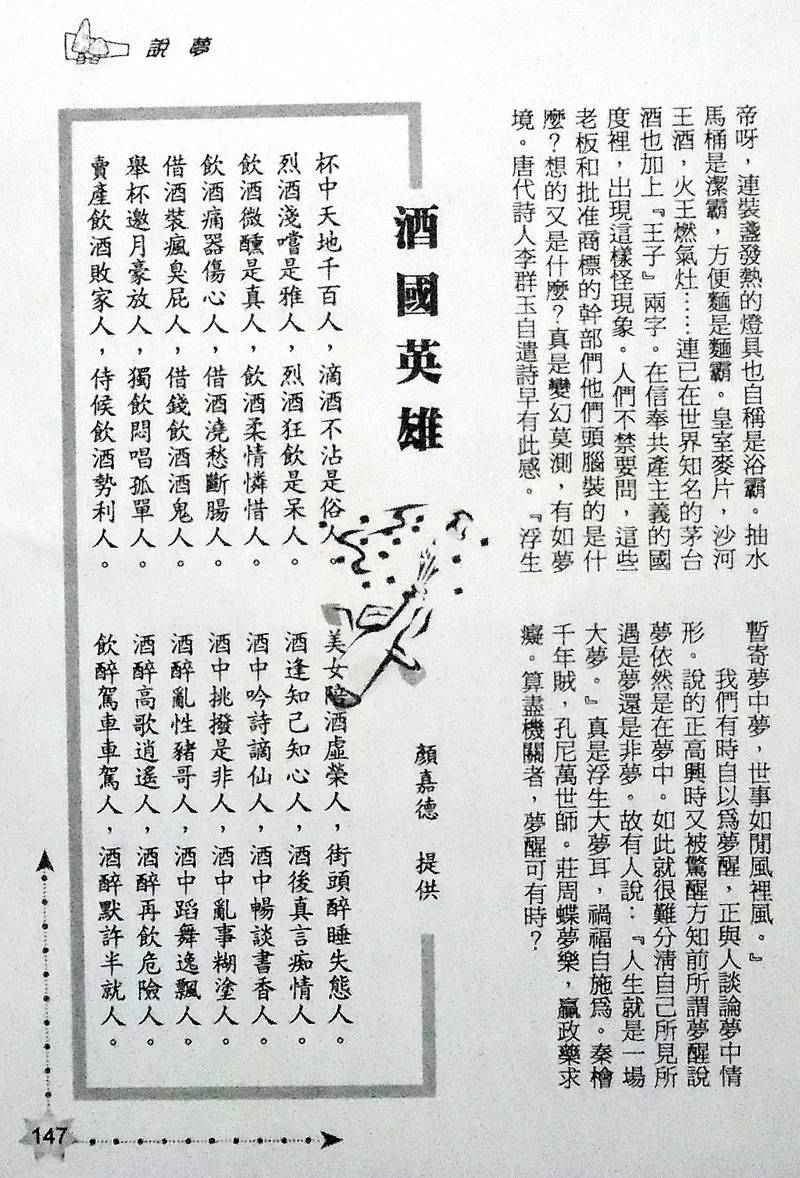 說夢
帝呀，連裝盞發熱的燈具也自稱是浴霸。抽水
馬桶是潔霸，方便麵是麵霸。皇室麥片，沙河
王酒，火王燃氣灶……連已在世界知名的茅台
酒也加上『王子』兩字。在信奉共產主義的國
度裡，出現這樣怪現象。人們不禁要問，這些
老板和批准商標的幹部們他們頭腦裝的是什
麼？想的又是什麼？真是變幻莫測，有如夢
境。唐代詩人李群玉自遣詩早有此感。『浮生
暫寄夢中夢，世事如聞風裡風。』
我們有時自以為夢醒，正與人談論夢中情
形。說的正高興時又被驚醒方知前所謂夢醒說
夢依然是在夢中。如此就很難分清自己所見所
遇是夢還是非夢。故有人說：『人生就是一場
大夢。』真是浮生大夢耳，禍福自施為。秦檜
千年賊，孔尼萬世師。莊周蝶夢樂，嬴政藥求
癡。算盡機關者，夢醒可有時？
酒國英雄
顏嘉德 提供
杯中天地千百人，滴酒不沾是俗人。
烈酒淺嚐是雅人，烈酒狂飲是呆人。
飲酒微醺是真人，飲酒柔情憐惜人。
飲酒痛器傷心人，借酒澆愁斷腸人。
借酒裝瘋臭屁人，借錢飲酒酒鬼人。
舉杯邀月豪放人，獨飲悶唱孤單人。
賣產飲酒敗家人，侍候飲酒勢利人。
美女陪酒虛榮人，街頭醉睡失態人。
酒逢知己知心人，酒後真言痴情人。
酒中吟詩謫仙人，酒中暢談書香人。
酒中挑撥是非人，酒中亂事糊塗人。
酒醉亂性豬哥人，酒中蹈舞逸飄人。
酒醉高歌逍遙人，酒醉再飲危險人。
飲醉駕車車駕人，酒醉默許半就人。
147